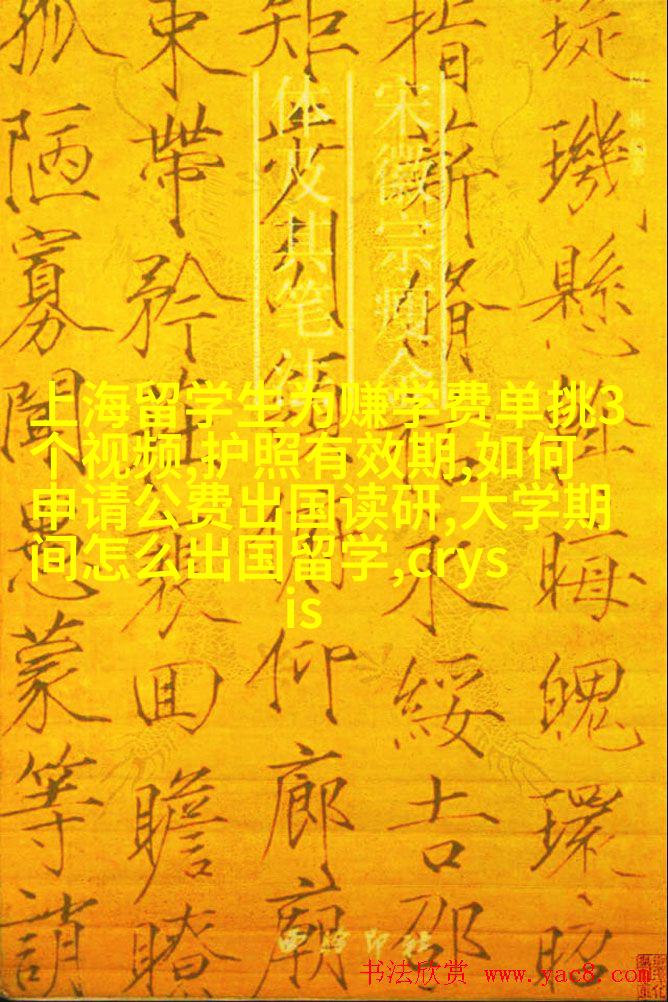 璇璣懸斡晦魄環照
指薪脩祜永綏吉邵
矩步引領俯仰廊廟
束帶矜莊徘徊瞻眺
孤陋寡聞愚蒙等誚
宋徽宗瘦金
体及其笔法
上海留学生为赚学费单挑3
个视频,护照有效期,如何
申请公费出国读研,大学期
间怎么出国留学,crys
is
西泠印社
书法欣赏 www.yac8.com